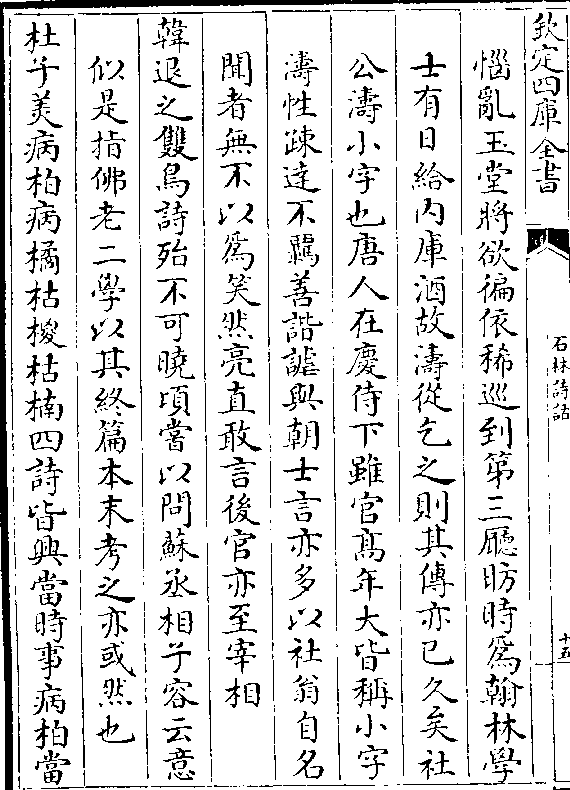 欽定四庫全書
石林詩話
十五
惱亂玉堂將欲徧依稀巡到第三廳昉時為翰林學
士有日給内庫酒故濤從乞之則其傳亦已久矣社
公濤小字也唐人在慶侍下雖官髙年大皆稱小字
濤性疎達不羈善諧謔與朝士言亦多以社翁自名
聞者無不以為笑然亮直敢言後官亦至宰相
韓退之雙鳥詩殆不可曉頃嘗以問蘇丞相子容云意
似是指佛老二學以其終篇本末考之亦或然也
杜子美病柏病橘枯椶枯楠四詩皆興當時事病柏當